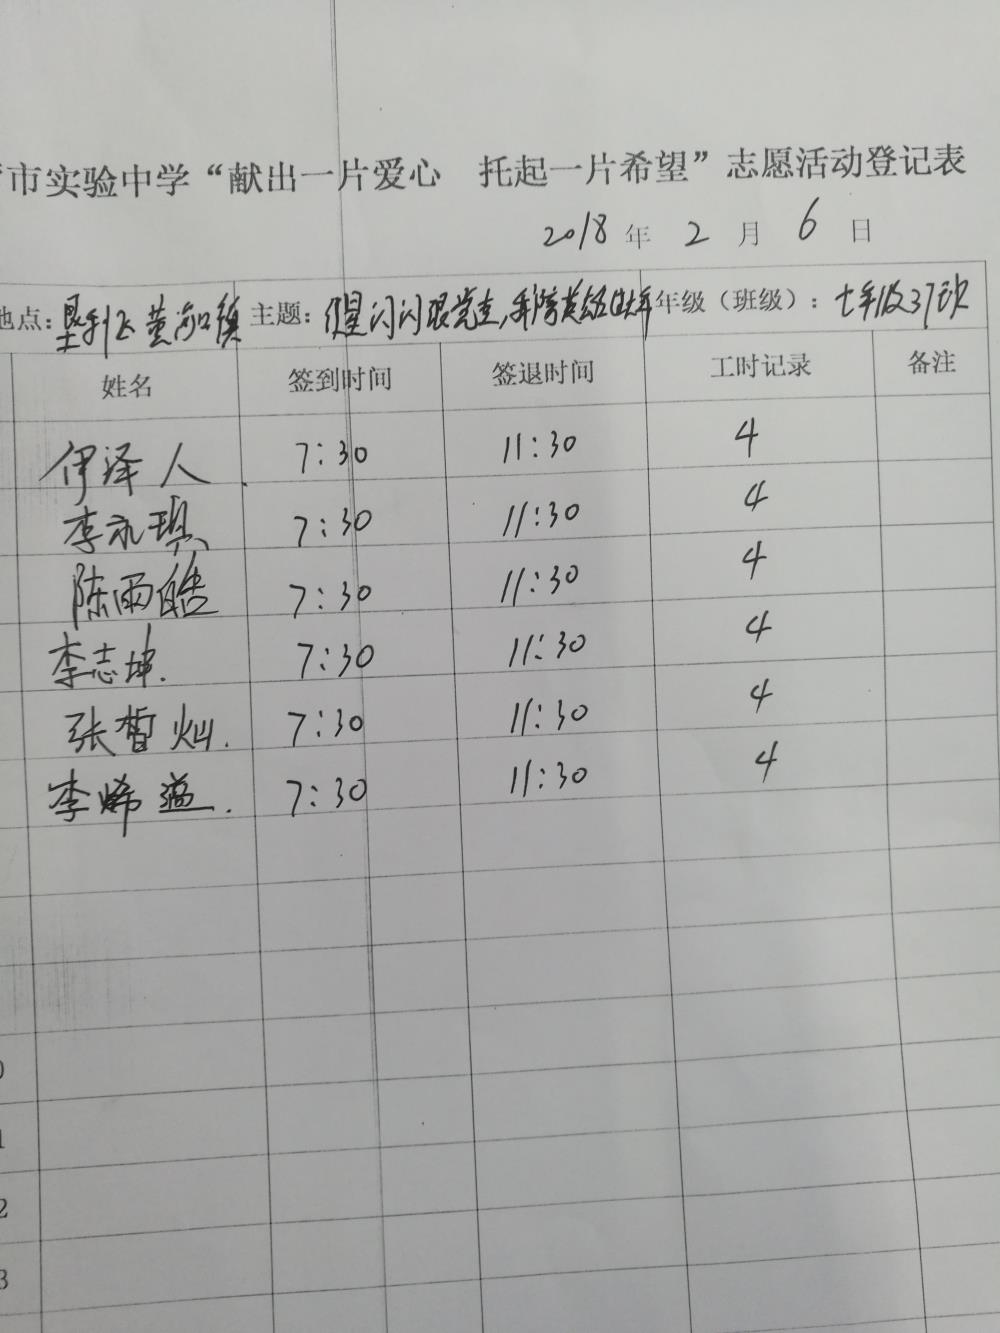 市实验中学“献出一片爱心 托起一片希望”志愿活动登记表
2018 年 2 月 6 日
地点：垦利区黄河口镇 主题：红星闪闪跟党走, 年级（班级）：七年级37班
姓名 签到时间 签退时间 工时记录 备注
伊泽人 7:30 11:30 4
李永琪 7:30 11:30 4
陈雨皓 7:30 11:30 4
李志坤. 7:30 11:30 4
张晢灿. 7:30 11:30 4
李烯蕴. 7:30 11:30 4
0
1
2
3